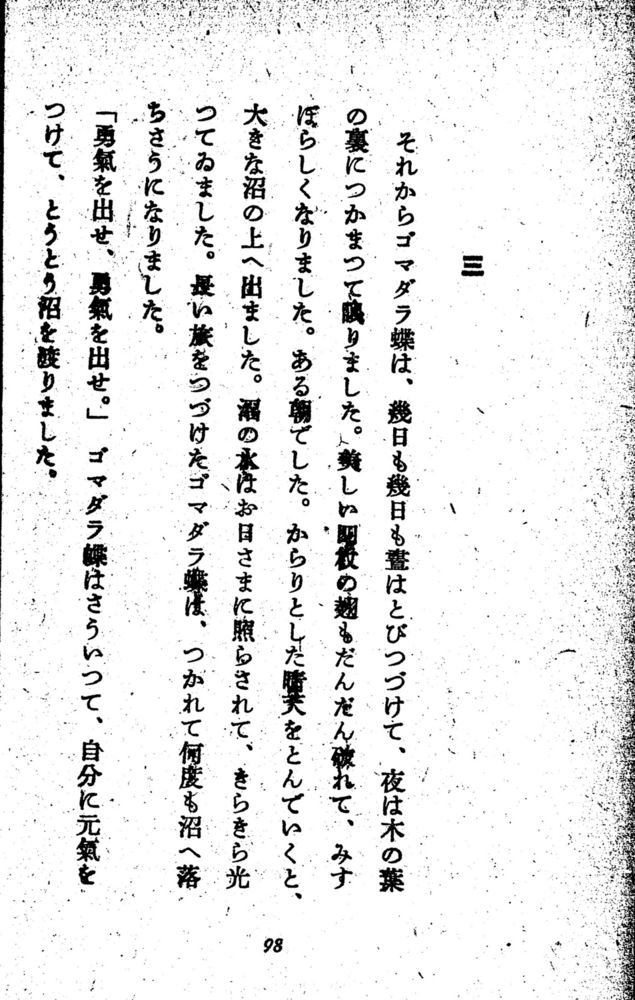 三
それからゴマダラ蝶は、幾日も幾日も晝はとびつづけて、夜は木の葉
の裏につかまつて眠りました。美しい四枚の翅もだんだん破れて、みす
ぼらしくなりました。ある朝でした。からりとした晴天をとんでいくと、
大きな沼の上へ出ました。沼の水はお日さまに照らされて、きらきら光
つてゐました。長い旅をつづけたゴマダラ蝶は、つかれて何度も沼へ落
ちさうになりました。
「勇氣を出せ、勇氣を出せ。」ゴマダラ蝶はさういつて、自分に元氣を
つけて、とうとう沼を渡りました。
98